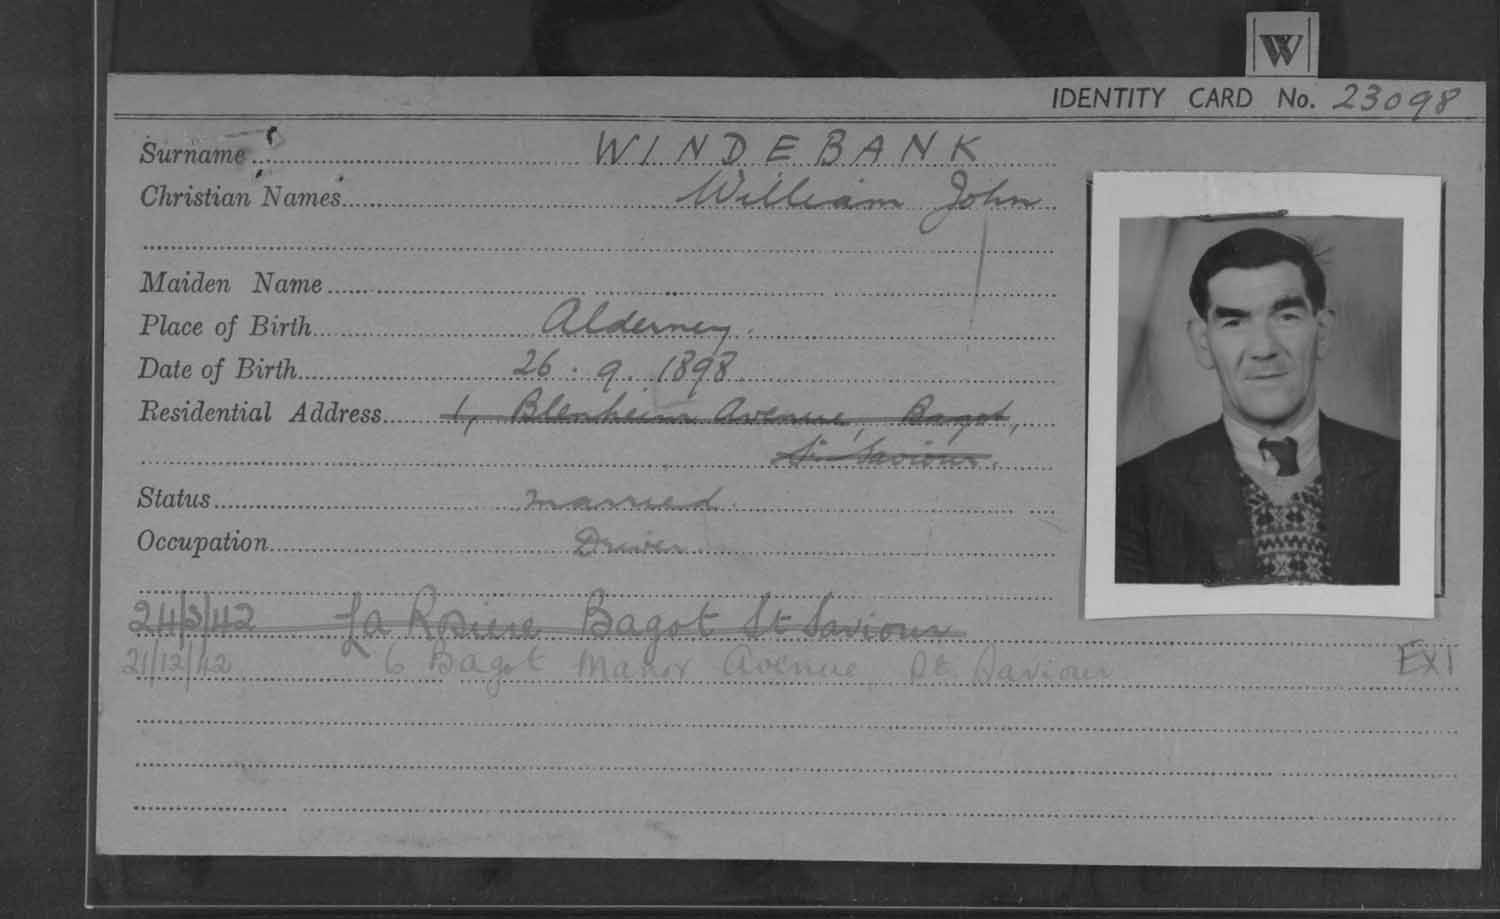 W
IDENTITY CARD No. 23098
Surname WINDEBANK
Christian Names William John
Maiden Name
Place of Birth Alderney.
Date of Birth 26.9.1898
Residential Address 1, Blenheim Avenue, Bagot,
St. Saviour.
Status married.
Occupation Driver
24/3/42 La Rosiere Bagot St Saviour
21/12/42 6 Bagot Manor Avenue, St. Saviour EXI